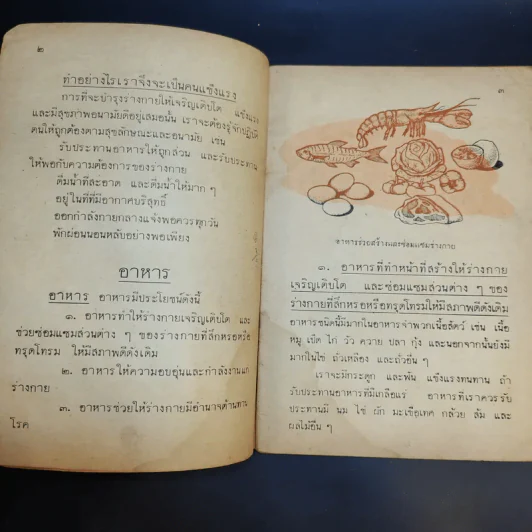 ๒
ทำอย่างไรเราจึงจะเป็นคนแข็งแรง
การที่จะบำรุงร่างกายให้เจริญเติบโต แข็งแรง
และมีสุขภาพอนามัยดีอยู่เสมอนั้น เราจะต้องรู้จักปฏิบัติ
ตนให้ถูกต้องตามสุขลักษณะและอนามัย เช่น
รับประทานอาหารให้ถูกส่วน และรับประทาน
ให้พอกับความต้องการของร่างกาย
ดื่มน้ำที่สะอาด และดื่มน้ำให้มาก ๆ
อยู่ในที่ที่มีอากาศบริสุทธิ์
ออกกำลังกายกลางแจ้งพอควรทุกวัน
พักผ่อนนอนหลับอย่างพอเพียง
อาหาร
อาหาร อาหารมีประโยชน์ดังนี้
๑. อาหารทำให้ร่างกายเจริญเติบโต และ
ช่วยซ่อมแซมส่วนต่าง ๆ ของร่างกายที่สึกหรอหรือ
ทรุดโทรม ให้มีสภาพดีดังเดิม
๒. อาหารให้ความอบอุ่นและกำลังงานแก่
ร่างกาย
๓. อาหารช่วยให้ร่างกายมีอำนาจต้านทาน
โรค
๓
อาหารช่วยสร้างและซ่อมแซมร่างกาย
๑. อาหารที่ทำหน้าที่สร้างให้ร่างกาย
เจริญเติบโต และซ่อมแซมส่วนต่าง ๆ ของ
ร่างกายที่สึกหรอหรือทรุดโทรมให้มีสภาพดีดังเดิม
อาหารชนิดนี้มีมากในอาหารจำพวกเนื้อสัตว์ เช่น เนื้อ
หมู เป็ด ไก่ วัว ควาย ปลา กุ้ง และนอกจากนั้นยังมี
มากในไข่ ถั่วเหลือง และถั่วอื่น ๆ
เราจะมีกระดูก และฟัน แข็งแรงทนทาน ถ้า
รับประทานอาหารที่มีเกลือแร่ อาหารที่เราควรรับ
ประทานมี นม ไข่ ผัก มะเขือเทศ กล้วย ส้ม และ
ผลไม้อื่น ๆ